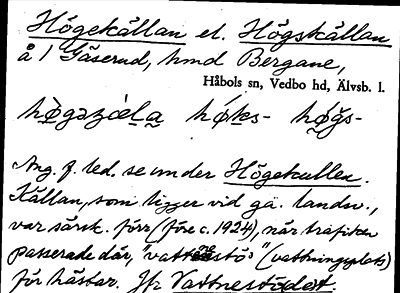 Högekällan el. Högskällan
å 1 Gäserud, hmd Bergane,
Håbols sn, Vedbo hd, Älvsb. l.
Ang. f. led. se under Högekullen.
Källan, som ligger vid ga. landsv.,
var särsk. förr (före c. 1924), när trafiken
passerade där, "vattnestö" (vattningsplats)
för hästar. Jfr Vattnestödet.